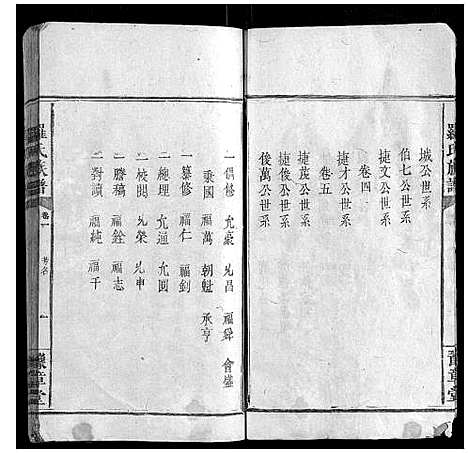 羅氏族譜
城公世系
伯七公世系
捷文公世系
卷四
捷才公世系
卷五
捷茂公世系
捷後公世系
後萬公世系
豫章堂
一倡修 允豪 兆昌 福舜 會盛
秉國 福萬 朝魁 承亨
一纂修 福仁 福釗
一總理 允通 允圓
一校閱 兆榮 兆申
一謄稿 福銓 福志
一對讀 福純 福千
羅氏族譜 卷一 一
豫章堂